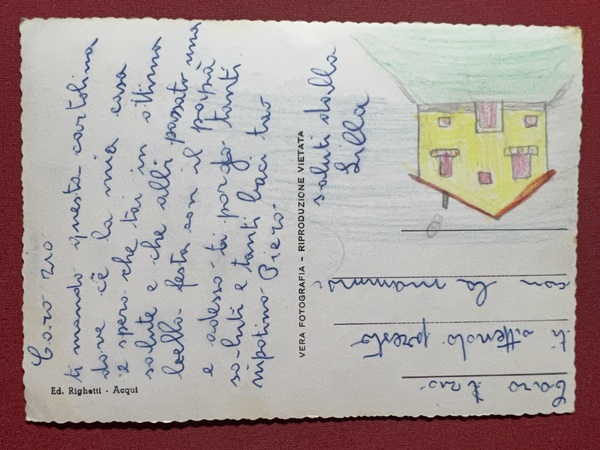 Caro zio
ti mando questa cartolina
dove cè la mia casa
e spero che tai in ottima
salute e che alli passato una
bella festa con il papà
e adesso ti porgo tanti
saluti e tanti baci tuo
nipotino Piero.
saluti dalla
Lilla
VERA FOTOGRAFIA - RIPRODUZIONE VIETATA
Ed. Righetti - Acqui
Caro zio
ti attendo presto
con la mamma.